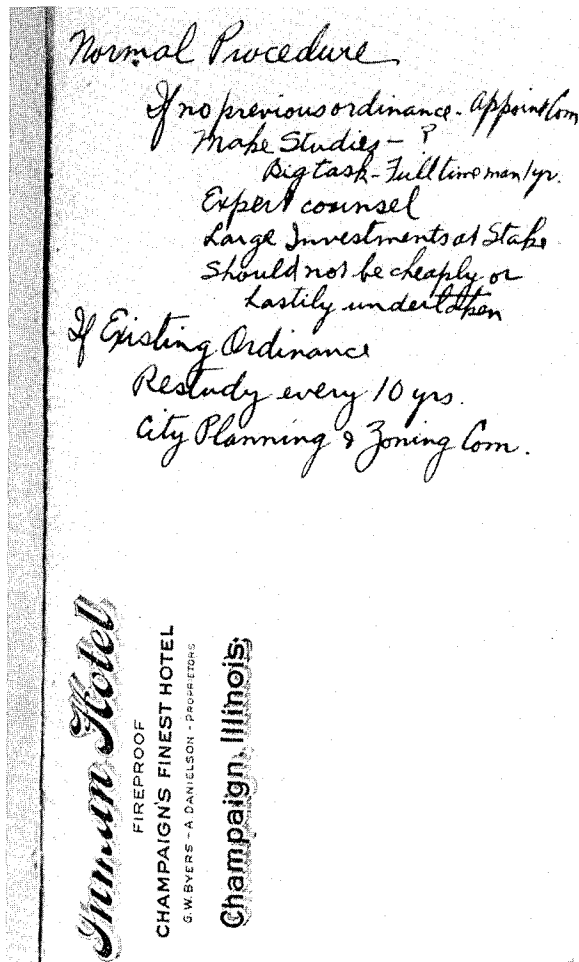 Normal Procedure
If no previous ordinance - Appoint Com
Make Studies - ?
Big task - Full time man 1 yr.
Expert counsel
Large Investments at Stake
Should not be cheaply or
hastily undertaken
If Existing Ordinance
Restudy every 10 yrs.
City Planning & Zoning Com.
Inman Hotel
FIREPROOF
CHAMPAIGN'S FINEST HOTEL
G.W. BYERS - A. DANIELSON - PROPRIETORS
Champaign, Illinois.